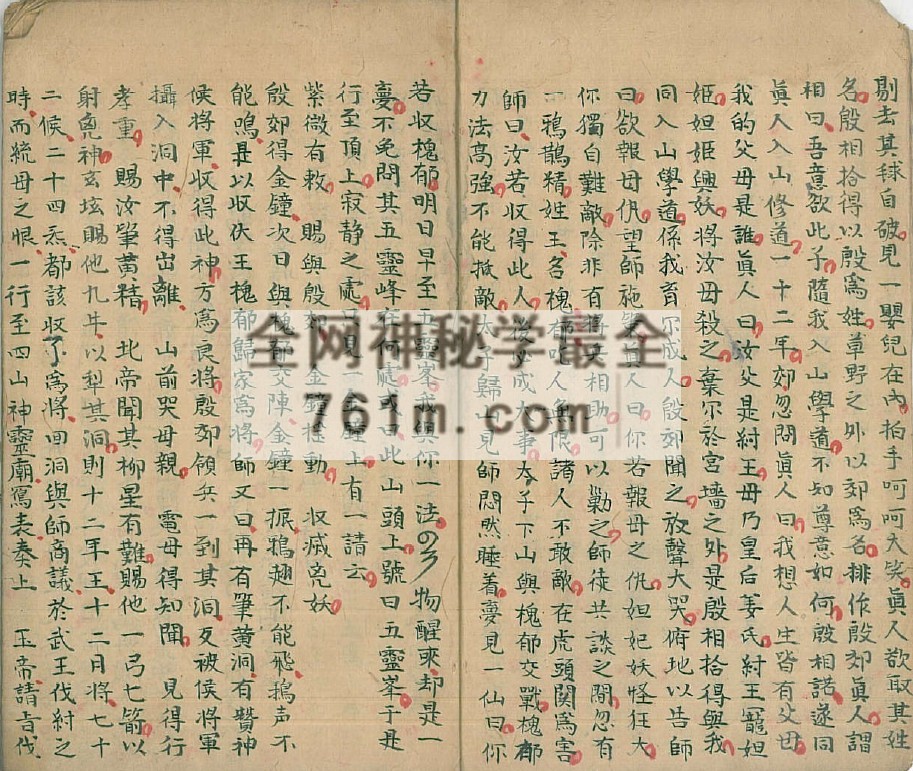 剔去其毬自破見一嬰兒在內拍手呵呵大笑真人欲取其姓
名殷相拾得以殷為姓草野之外以郊為名排作殷郊真人謂
相曰吾意欲此子隨我入山學道不知尊意如何殷相諾遂同
真人入山修道一十二年郊忽問真人曰我想人生皆有父母
我的父母是誰真人曰汝父是紂王毋乃皇后姜氏紂王寵妲
姬妲姬興妖將汝母殺之棄尔於宮墻之外是殷相拾得與我
同入山學道係我育尔成人殷郊聞之放聲大哭俯地以告師
曰欲報母仇望師施 人曰你若報母之仇妲妃妖怪狂大
你獨自難敵除非有 相助可以勦之師徒共談之間忽有
一鴉鵲精姓王名槐 人無限諸人不敢敵在虎頭関為害
師曰汝若收得此人 成大事太子下山與槐郁交戰槐郁
力法高強不能敵太子歸 見師悶然睡着夢見一仙曰你
若收槐郁明日早至五靈峯我與你一法 物醒來却是一
夢不免問其五靈峰在何處或曰此山頭上號曰五靈峯于是
行至頂上寂静之處 見 鐘上有一請云
紫微有敕 賜與殷郊 金鐘搖動 收滅兇妖
殷郊得金鐘次日與槐郁交陣金鐘一振鴉翅不能飛鵲声不
能鳴是以收伏王槐郁歸家為將師又曰再有筆黄洞有贊神
候將軍收得此神方為良將殷郊領兵一到其洞反被候將軍
攝入洞中不得出離 山前哭母親 電母得知聞 見得行
孝重 賜汝筆黄精 北帝聞其柳星有難賜他一弓七箭以
射鬼神玄坛賜他九牛以犁其洞則十二年王十二日將七十
二候二十四炁都該收了為將回洞與師商議於武王伐紂之
時而統母之恨一行至四山神靈廟寫表奏上 玉帝請旨伐
全网神秘学最全
761m.com